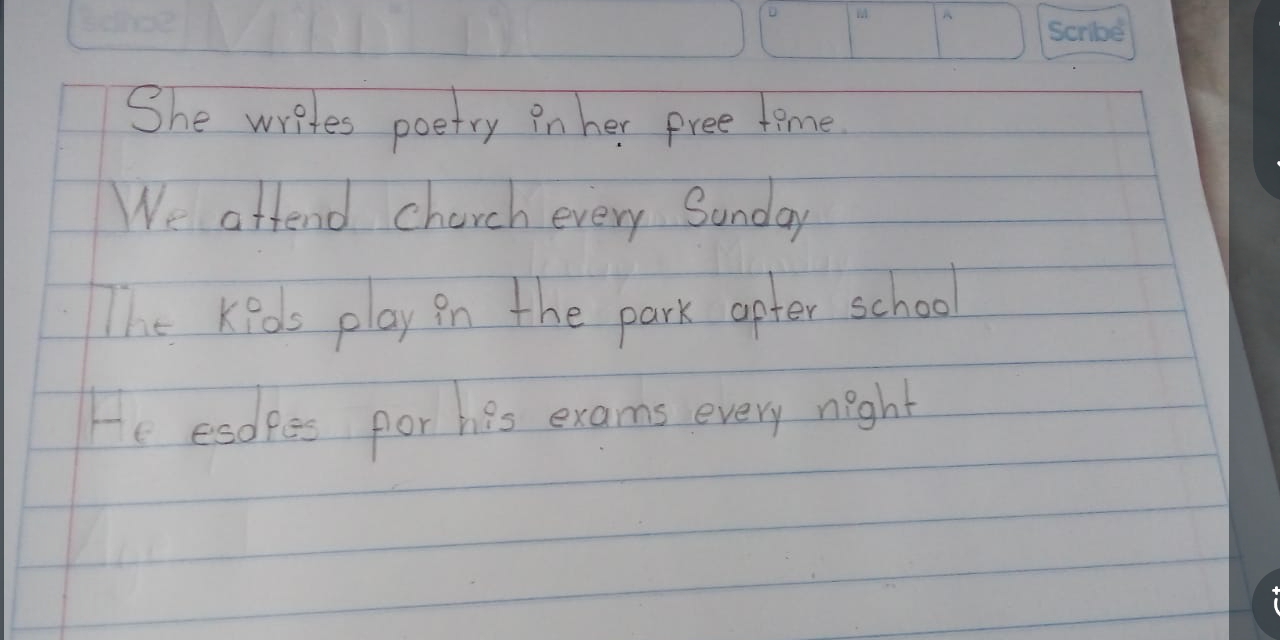 D M A Scribe
She writes poetry in her free time.
We attend church every Sunday
The kids play in the park after school
He esdies for his exams every night